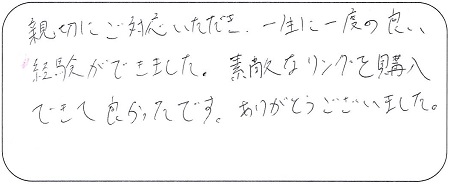 親切にご対応いただき、一生に一度の良い
経験ができました。素敵なリングを購入
できて良かったです。ありがとうございました。